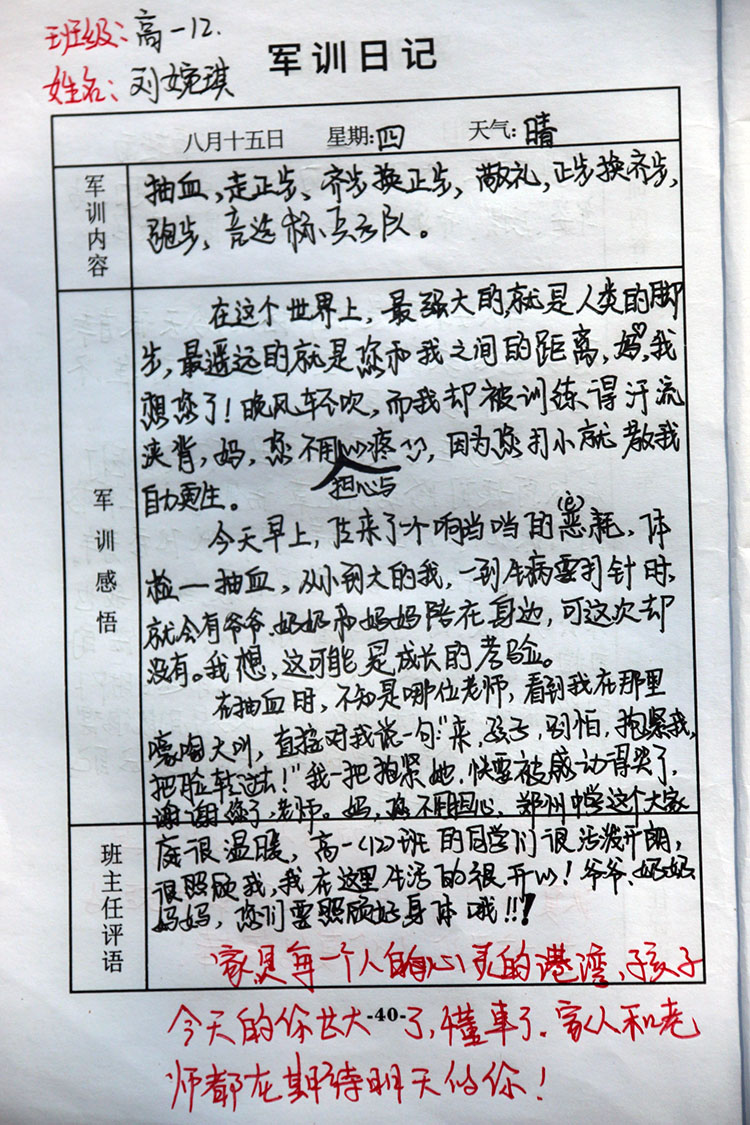 班级:高一12.
军训日记
姓名:刘婉琪
八月十五日 星期:四 天气:晴
军训内容
抽血,走正步、齐步换正步,敬礼,正步换齐步,
跑步,竞选标兵方队。
军训感悟
在这个世界上,最强大的,就是人类的脚
步,最遥远的就是您和我之间的距离,妈,我
想您了!晚风轻吹,而我却被训练得汗流
浃背,妈,您不用心疼,因为您打小就教我
担心与
自力更生。
(è)
今天早上,传来了个响当当的恶耗,体
检一抽血,从小到大的我,一到生病要打针时,
就会有爷爷、奶奶和妈妈陪在身边,可这次却
没有。我想,这可能是成长的考验。
在抽血时,不知是哪位老师,看到我在那里
嚎啕大叫,直接对我说一句:"来,孩子,别怕,抱紧我,
把脸转过去!"我一把抱紧她,快要被感动得哭了,
谢谢您了,老师。妈,您不用担心,郑州中学这个大家
班主任评语
庭很温暖,高一(12)班的同学们很活泼开朗,
很照顾我,我在这里生活的很开心!爷爷、奶奶、
妈妈,您们要照顾好身体哦!!!
家是每一个人的心灵的港湾,孩子
今天的你长大了,懂事了.家人和老
-40-
师都在期待明天的你!